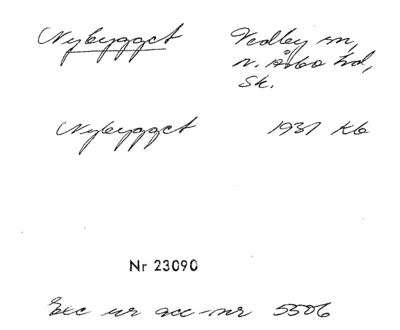 Nybygget Vedby sn,
N. Åsbo hd,
Sk.
Nybygget 1931 Kb
Nr 23090
Exc ur acc-nr 5506